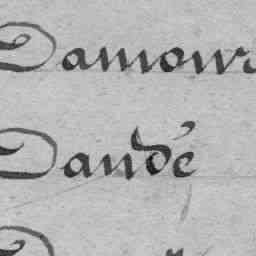 Damour
Dandé